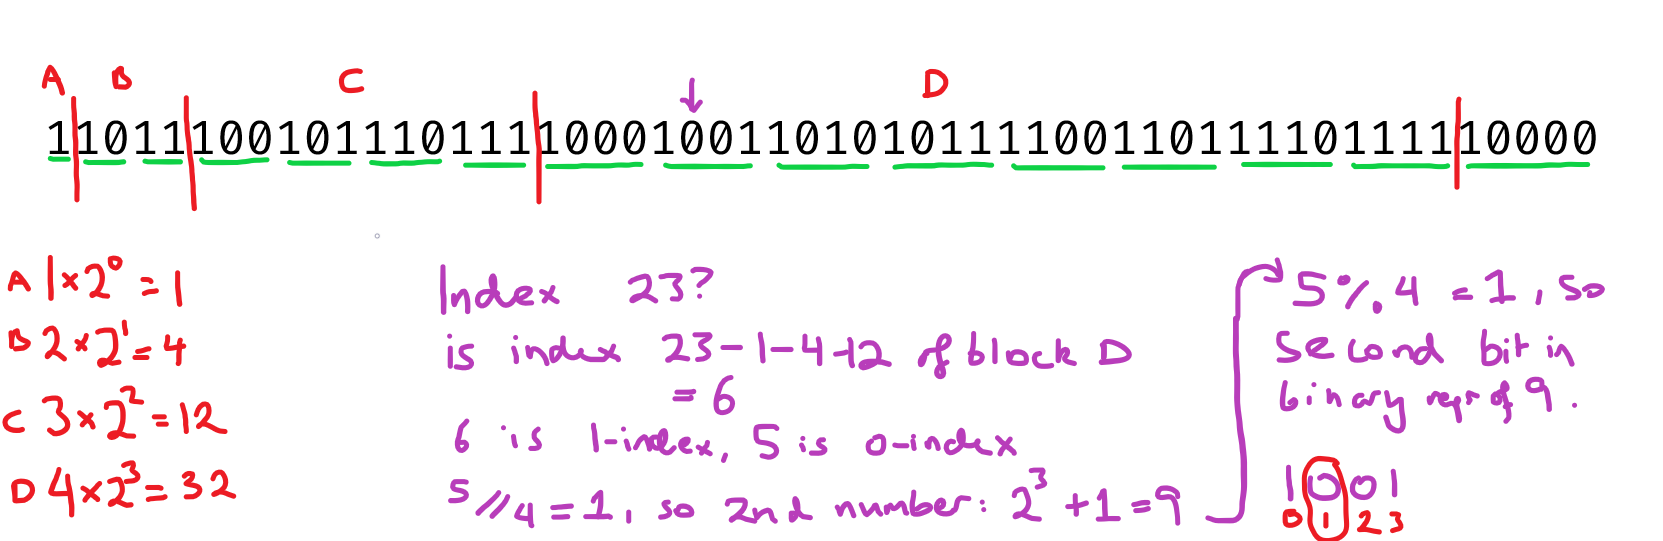 A B C ↓ D
110111001011101111000100110101011110011011110111110000
A 1×2⁰ = 1
B 2×2¹ = 4
C 3×2² = 12
D 4×2³ = 32
Index 23?
is index 23-1-4-12 of block D
= 6
6 is 1-index, 5 is 0-index
5//4 = 1, so 2nd number: 2³ + 1 = 9
5 % 4 = 1, so
second bit in
binary repr of 9.
1001
0 1 2 3